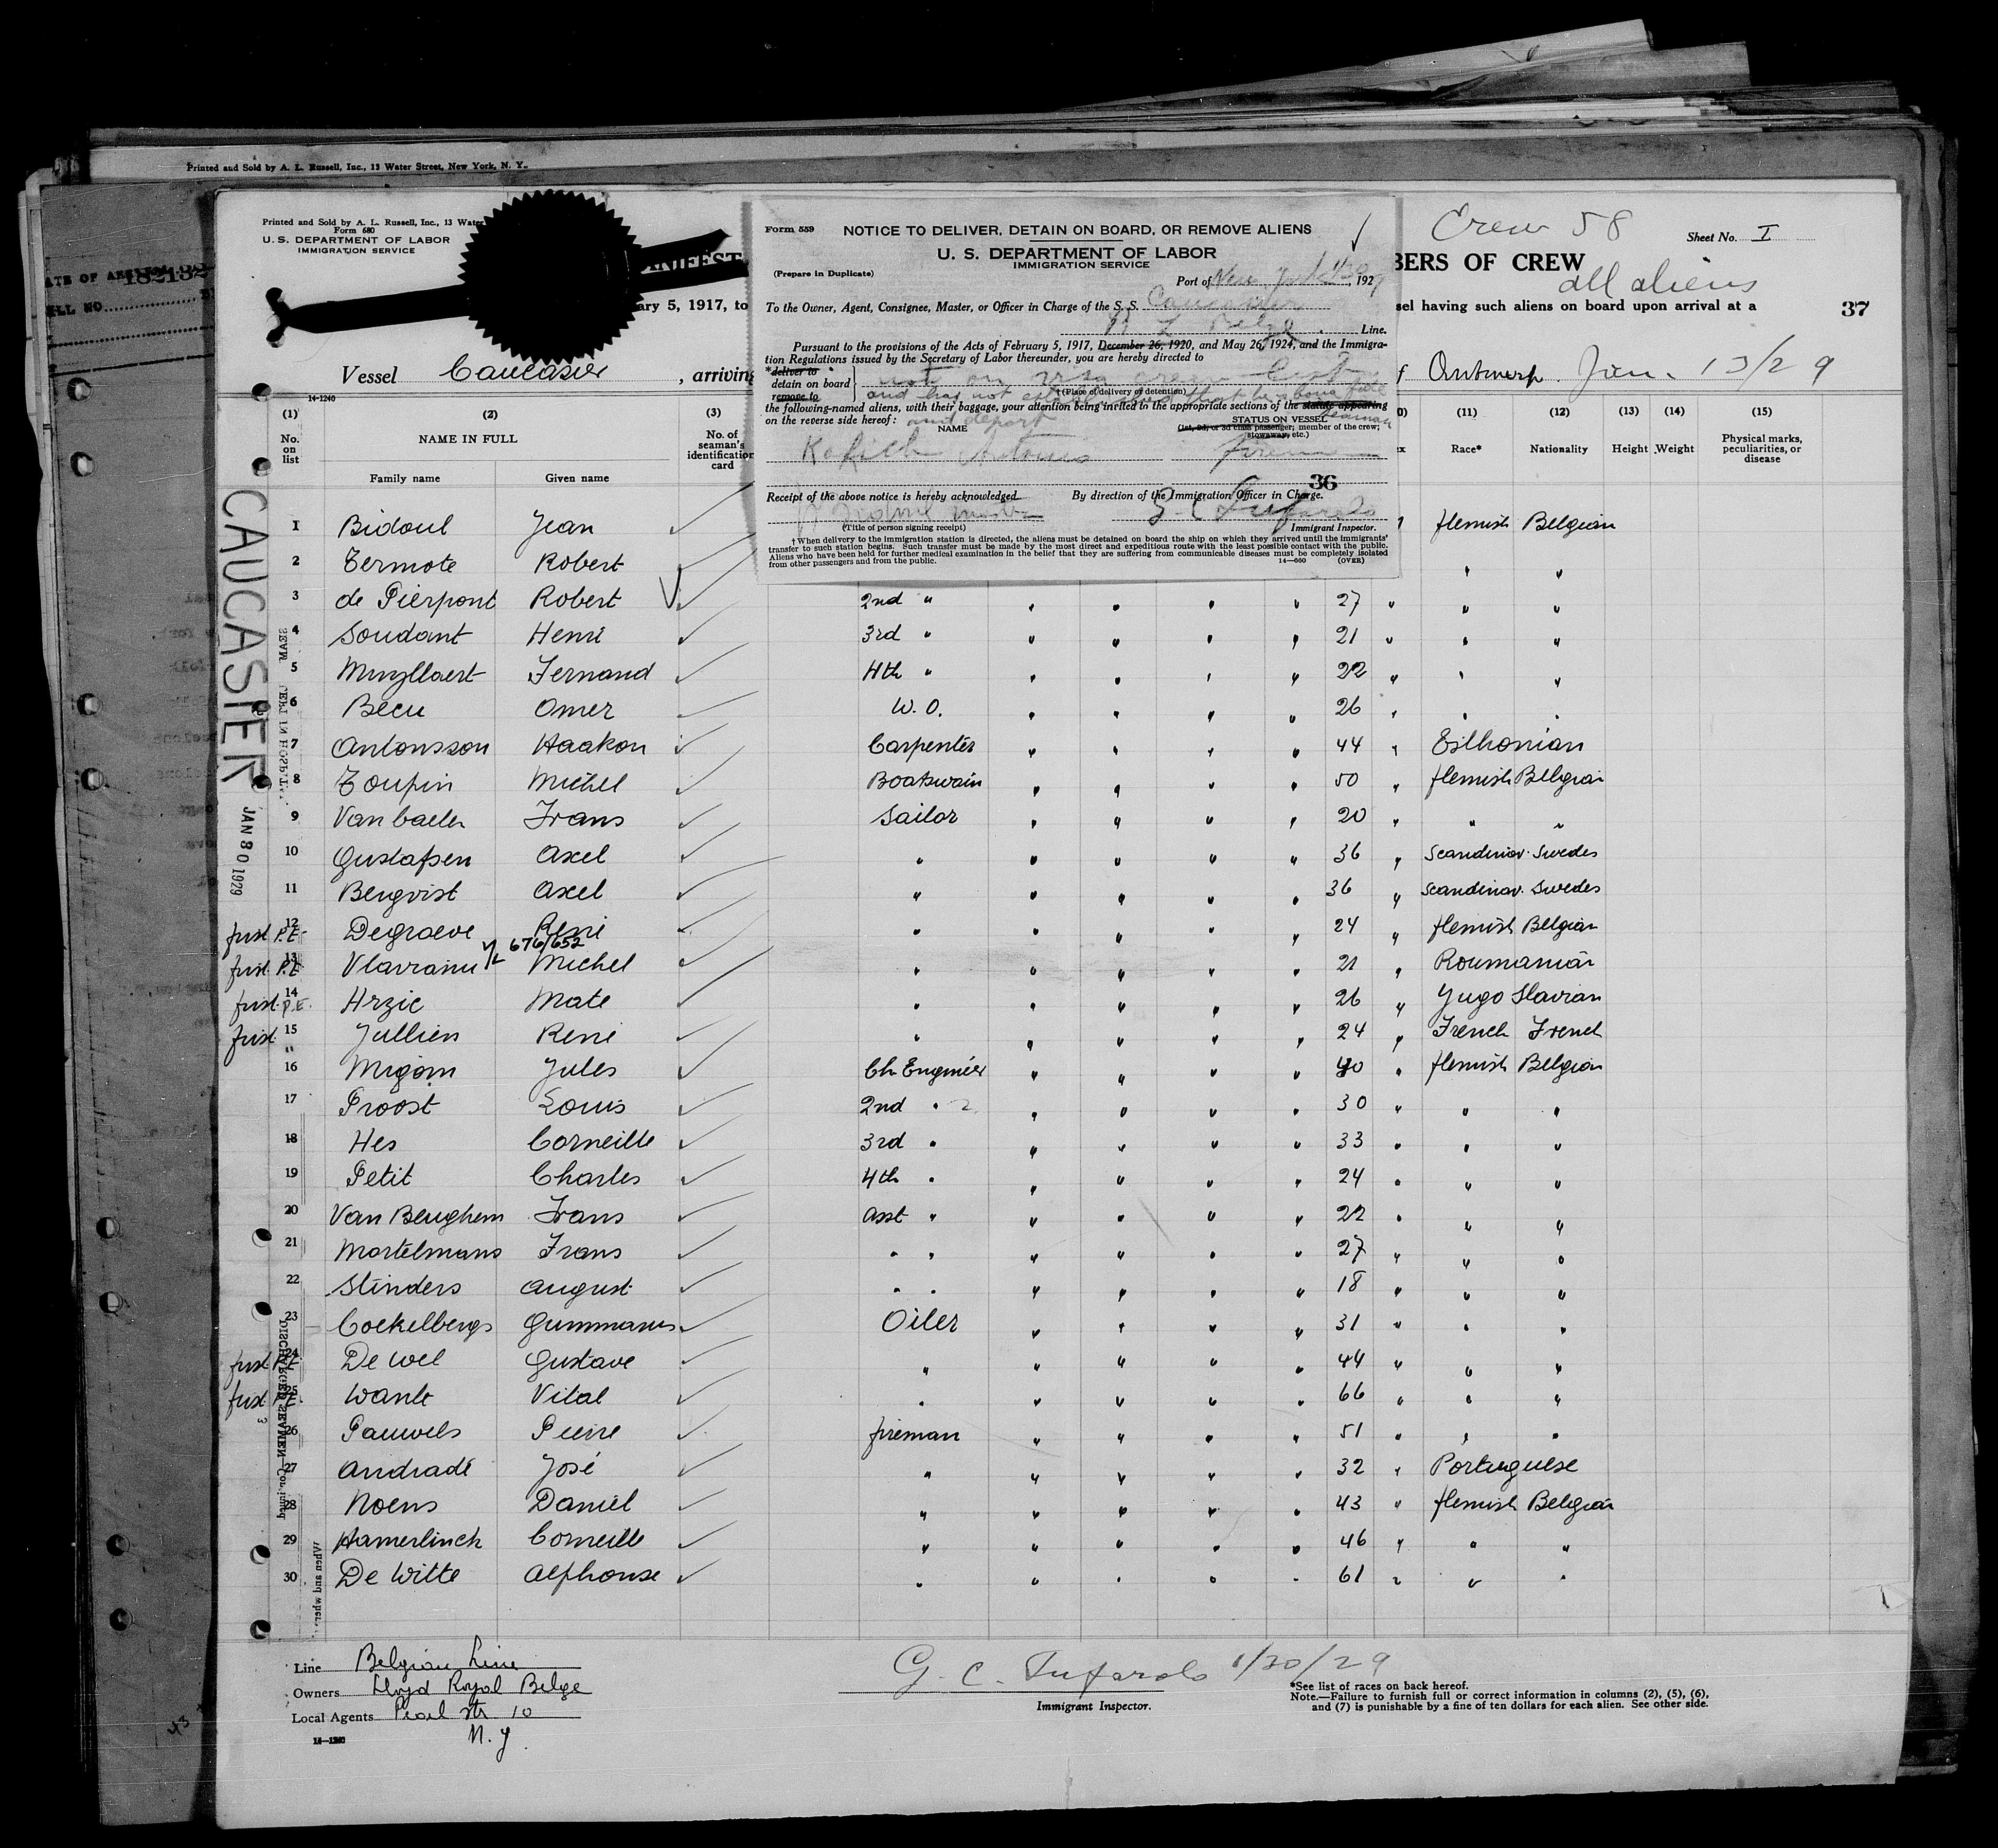 Printed and Sold by A. L. Russell, Inc., 13 Water Street, New York, N. Y.
Printed and Sold by A. L. Russell, Inc., 13 Water
Form 680
U. S. DEPARTMENT OF LABOR
IMMIGRATION SERVICE
Crew 58
Sheet No. I
BERS OF CREW
all aliens
ary 5, 1917, to
sel having such aliens on board upon arrival at a
37
Vessel Caucasier, arriving
Antwerp. Jan. 13/29
Form 559
NOTICE TO DELIVER, DETAIN ON BOARD, OR REMOVE ALIENS
U. S. DEPARTMENT OF LABOR
IMMIGRATION SERVICE
(Prepare in Duplicate)
Port of New York, 1929
To the Owner, Agent, Consignee, Master, or Officer in Charge of the S. S. Caucasier
Belge Line.
Pursuant to the provisions of the Acts of February 5, 1917, December 26, 1920, and May 26, 1924, and the Immigra-
tion Regulations issued by the Secretary of Labor thereunder, you are hereby directed to
*deliver to
detain on board
remove to
not on visa crew list
†(Place of delivery of detention)
and has not established that he is bona fide
the following-named aliens, with their baggage, your attention being invited to the appropriate sections of the statute appearing
seaman
on the reverse side hereof: and depart
NAME
STATUS ON VESSEL
(1st, 2d, or 3d class passenger; member of the crew;
stowaway, etc.)
Antonio fireman
36
Receipt of the above notice is hereby acknowledged
By direction of the Immigration Officer in Charge.
master
G. C. Tufarolo
(Title of person signing receipt)
Immigrant Inspector.
† When delivery to the immigration station is directed, the aliens must be detained on board the ship on which they arrived until the immigrants'
transfer to such station begins. Such transfer must be made by the most direct and expeditious route with the least possible contact with the public.
Aliens who have been held for further medical examination in the belief that they are suffering from communicable diseases must be completely isolated
from other passengers and from the public.
14—660 (OVER)
14-1240
(1) (2) (3) (11) (12) (13) (14) (15)
No. on list
NAME IN FULL
Family name Given name
No. of seaman's identification card
Race* Nationality Height Weight Physical marks, peculiarities, or disease
CAUCASIER
JAN 30 1929
1 Bidoul Jean flemish Belgian
2 Termote Robert " "
3 de Pierpont Robert 2nd " " " " " 27 " " "
4 Soudant Henri 3rd " " " " " 21 " " "
5 Muyllaert Fernand 4th " " " " " 22 " " "
6 Becu Omer W. O. " " " " 26 " " "
7 Antonsson Haakon Carpenter " " " " 44 " Esthonian
8 Toupin Michel Boatswain " " " " 50 " flemish Belgian
9 Van Caeler Frans Sailor " " " " 20 " " "
10 Gustafsen Axel " " " " " 36 " Scandinav. Swedes
11 Bergvist Axel " " " " " 36 " Scandinav. Swedes
first P.E. 12 Degraeve René " " " " " 24 " flemish Belgian
676/652
first P.E. 13 Vlavianu Michel " " " " " 21 " Roumanian
first P.E. 14 Hrzic Mate " " " " " 26 " Yugo Slavian
first " 15 Jullien René " " " " " 24 " French French
16 Migom Jules Ch Engineer " " " " 40 " flemish Belgian
17 Proost Louis 2nd " " " " " 30 " " "
18 Hes Corneille 3rd " " " " " 33 " " "
19 Petit Charles 4th " " " " " 24 " " "
20 Van Beughem Frans Asst " " " " " 22 " " "
21 Mortelmans Frans " " " " " " 27 " " "
22 Stinders August " " " " " " 18 " " "
23 Cockelbergs Gummarus Oiler " " " " 31 " " "
first P.E. 24 De Wel Gustave " " " " " 44 " " "
first P.E. 25 Wante Vital " " " " " 66 " " "
26 Pauwels Pierre fireman " " " " 51 " " "
27 Andradé José " " " " " 32 " Portuguese
28 Noens Daniel " " " " " 43 " flemish Belgian
29 Hamerlinck Corneille " " " " " 46 " " "
30 De Witte Alphonse " " " " " 61 " " "
Line Belgian Line
Owners Lloyd Royal Belge
Local Agents Pearl Str 10
N. Y.
14—1240
G. C. Tufarolo 1/30/29
Immigrant Inspector.
*See list of races on back hereof.
Note.—Failure to furnish full or correct information in columns (2), (5), (6),
and (7) is punishable by a fine of ten dollars for each alien. See other side.